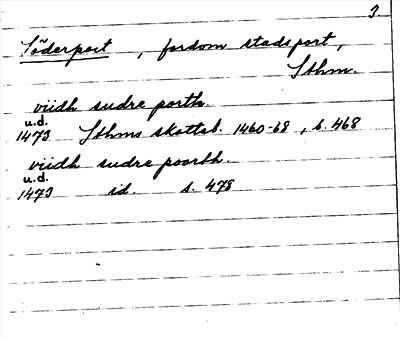 3
Söderport, fordom stadsport,
Sthm.
viidh sudre porth.
u.d.
1473 Sthms skatteb. 1460-68, s. 468
viidh sudre poorth.
u.d.
1473 id. s. 478